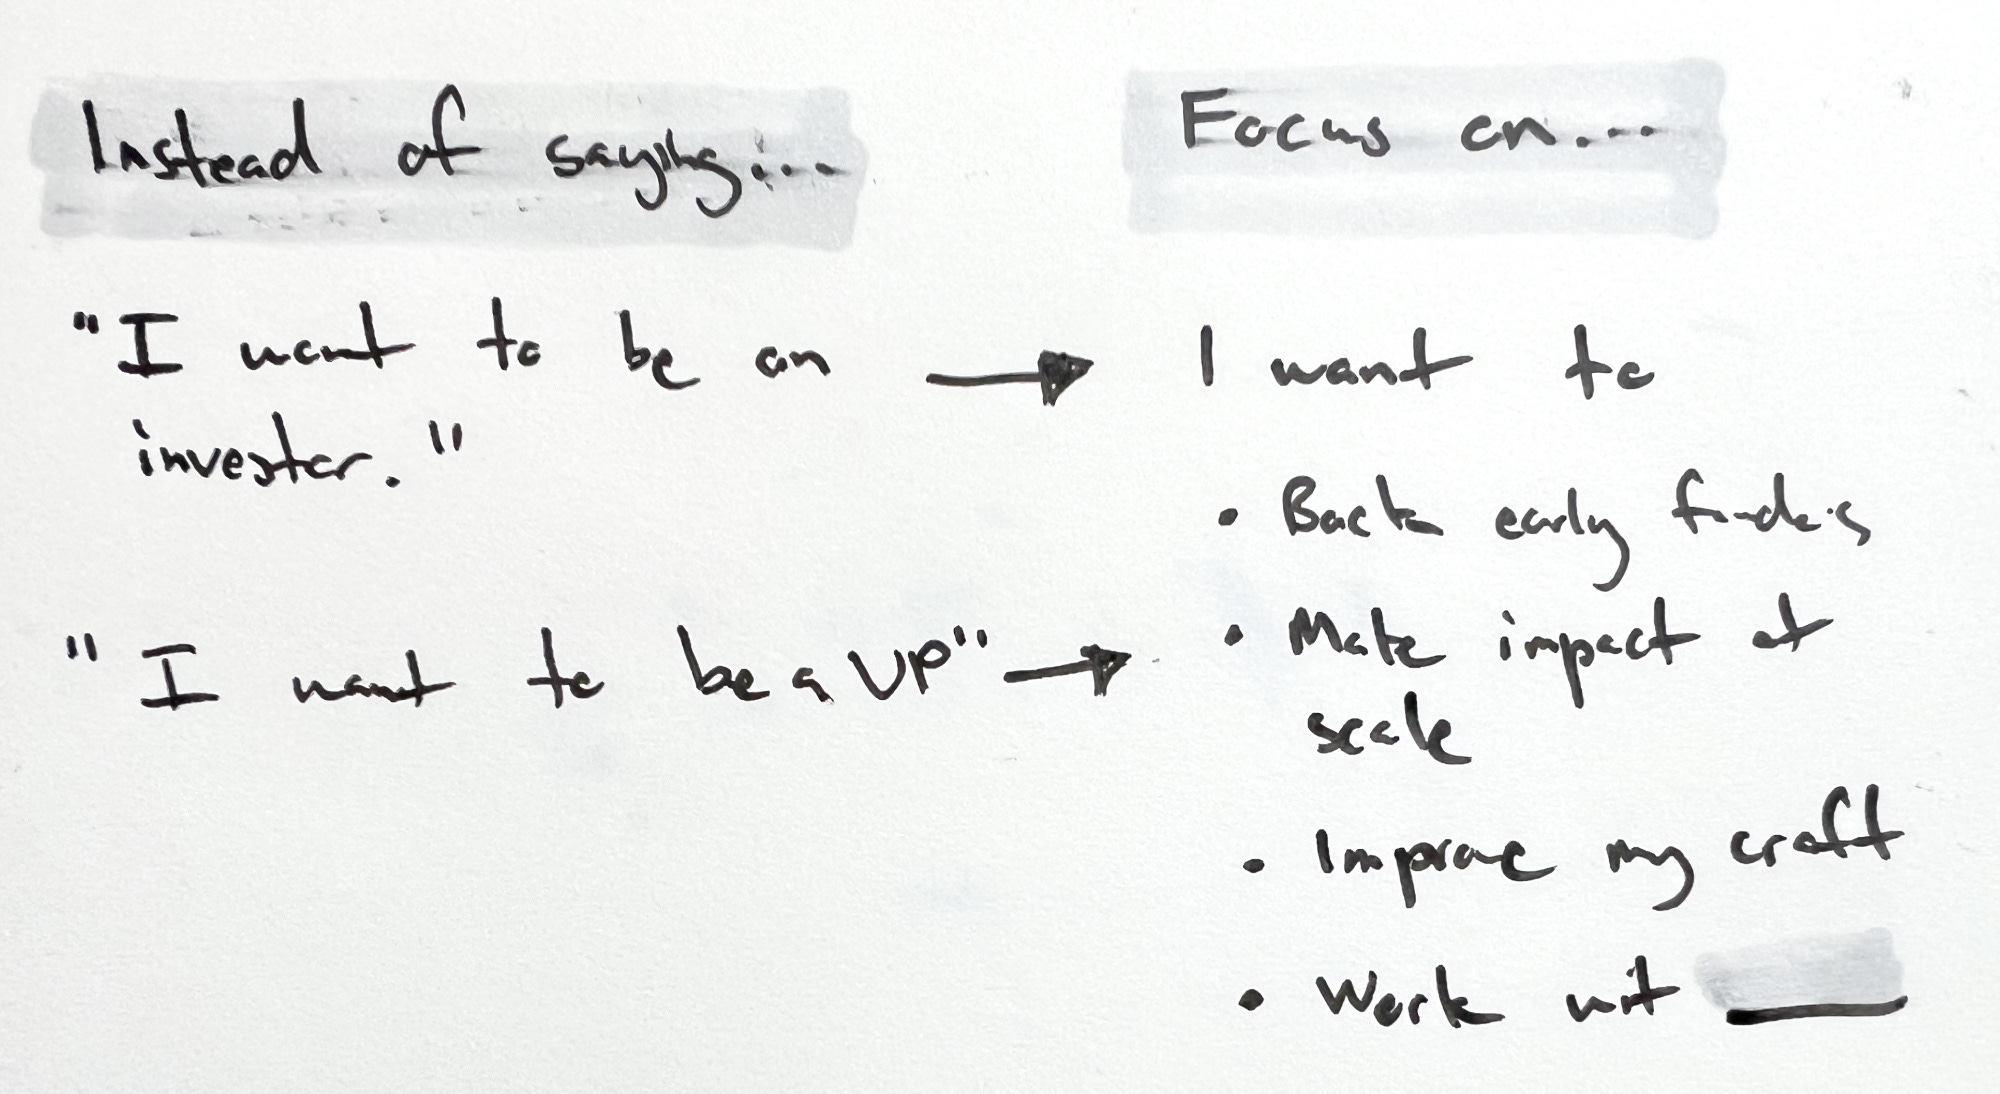 Instead of saying...
Focus on...
"I want to be an
investor."
I want to
• Back early founders
• Make impact at
scale
"I want to be a VP"
• Improve my craft
• Work with